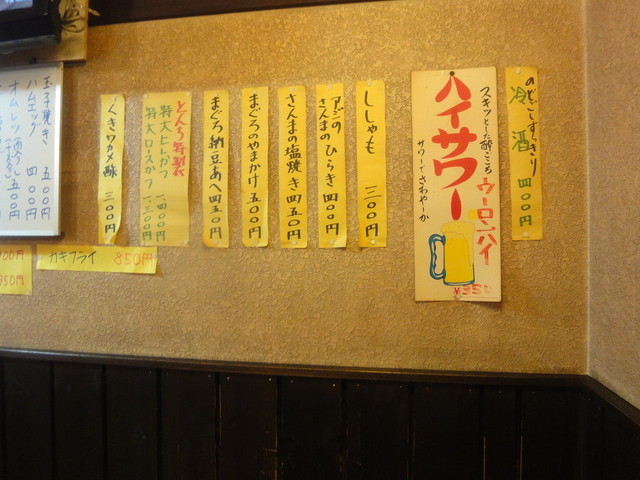 のどごしすっきり
冷酒 四〇〇円
スキッとした酔ごころ
ハイサワー
ウーロンハイ
サワーでさわやーか
¥350
ししゃも 三〇〇円
アジの
さんまの ひらき 四〇〇円
さんまの塩焼き 四五〇円
まぐろのやまかけ 五〇〇円
まぐろ納豆あへ 四五〇円
とんち特製
特大ヒレかつ 一、四〇〇円
特大ロースかつ 一、三〇〇円
くきワカメ酢 三〇〇円
カキフライ 850円
玉子焼き 五〇〇円
ハムエッグ 四〇〇円
オムレツ 五〇〇円
950円